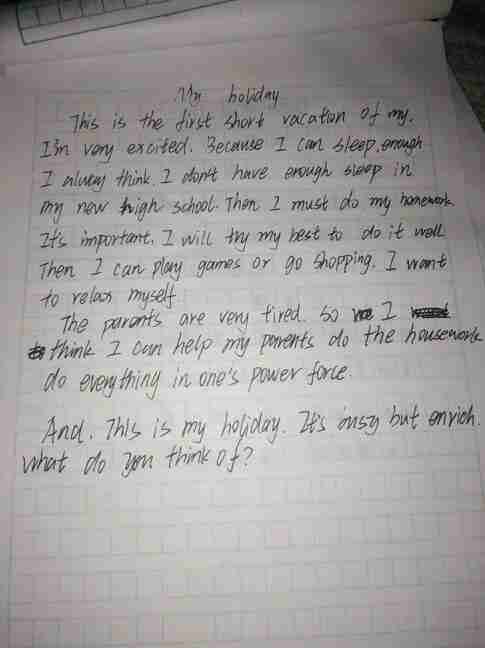 My holiday
This is the first short vacation of my.
I'm very excited. Because I can sleep, enough
I alway think. I don't have enough sleep in
my new high school. Then I must do my homework.
It's important. I will try my best to do it well
Then I can play games or go shopping. I want
to relax myself.
The parants are very tired. So I
think I can help my parents do the housework
do everything in one's power force.
And. This is my holiday. It's busy but enrich.
What do you think of?